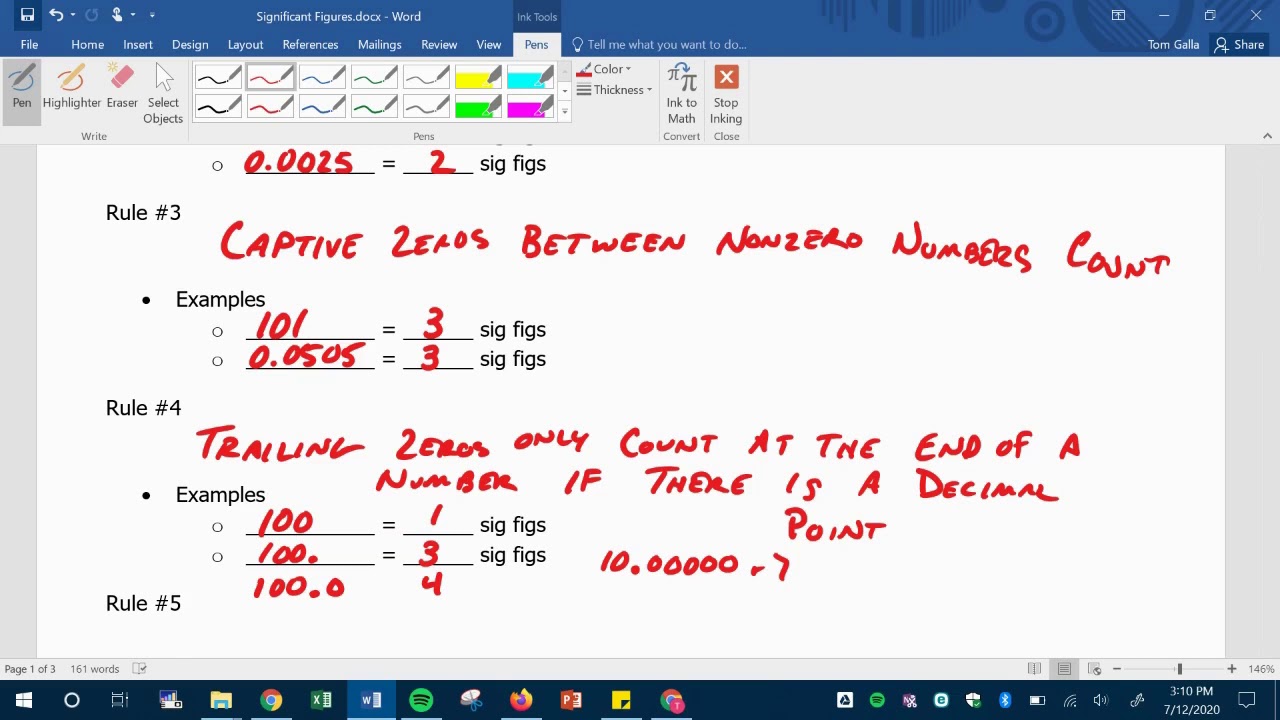 Significant Figures.docx - Word
Ink Tools
File Home Insert Design Layout References Mailings Review View Pens Tell me what you want to do... Tom Galla Share
Pen Highlighter Eraser Select Objects
Color
Thickness
Ink to Math
Stop Inking
Write Pens Convert Close
0.0025 = 2 sig figs
Rule #3
CAPTIVE ZEROS BETWEEN NONZERO NUMBERS COUNT
• Examples
o 101 = 3 sig figs
o 0.0505 = 3 sig figs
Rule #4
TRAILING ZEROS ONLY COUNT AT THE END OF A
NUMBER IF THERE IS A DECIMAL
POINT
• Examples
o 100 = 1 sig figs
o 100. = 3 sig figs
10.00000 - 7
100.0 4
Rule #5
Page 1 of 3 161 words 146%
3:10 PM
7/12/2020